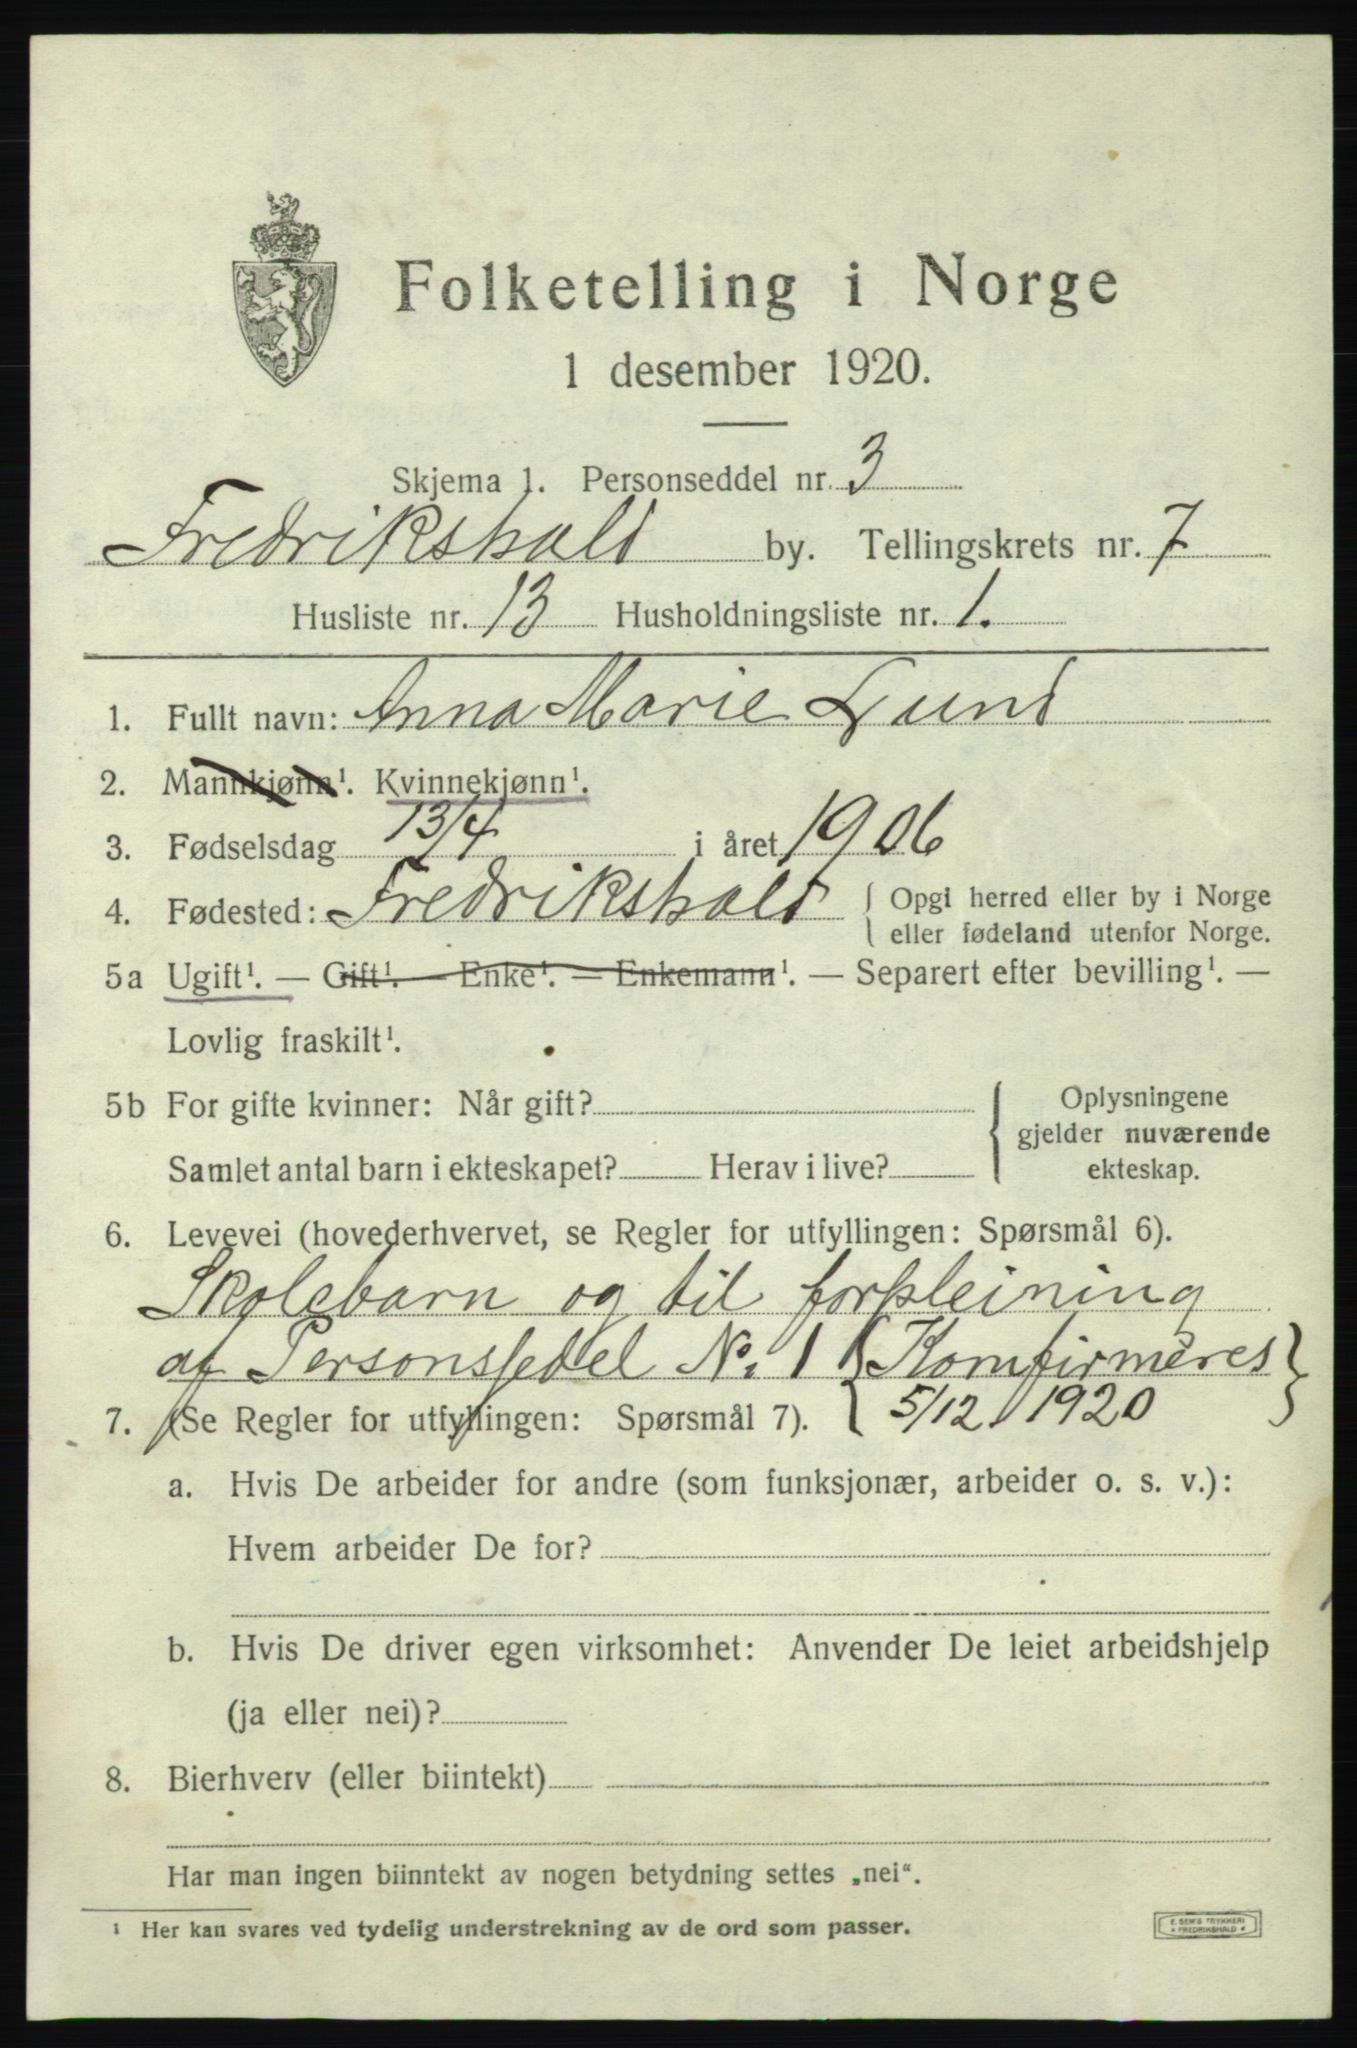 Folketelling i Norge
1 desember 1920.
Skjema 1. Personseddel nr. 3
Fredrikshald by. Tellingskrets nr. 7
Husliste nr. 13 Husholdningsliste nr. 1.
1. Fullt navn: Anna Marie Lund
2. Mannkjønn¹. Kvinnekjønn¹.
3. Fødselsdag 13/4 i året 1906
4. Fødested: Fredrikshald { Opgi herred eller by i Norge
eller fødeland utenfor Norge.
5a Ugift¹. — Gift¹. — Enke¹. — Enkemann¹. — Separert efter bevilling¹. —
Lovlig fraskilt¹.
5b For gifte kvinner: Når gift?
Samlet antal barn i ekteskapet? Herav i live?
{ Oplysningene
gjelder nuværende
ekteskap.
6. Levevei (hovederhvervet, se Regler for utfyllingen: Spørsmål 6).
Skolebarn og til forpleining
af Personssedel No. 1 { Komfirmeres }
7. (Se Regler for utfyllingen: Spørsmål 7). 5/12 1920
a. Hvis De arbeider for andre (som funksjonær, arbeider o. s. v.):
Hvem arbeider De for?
b. Hvis De driver egen virksomhet: Anvender De leiet arbeidshjelp
(ja eller nei)?
8. Bierhverv (eller biintekt)
Har man ingen biinntekt av nogen betydning settes „nei“.
¹ Her kan svares ved tydelig understrekning av de ord som passer.
E. SEM'S TRYKKERI
FREDRIKSHALD